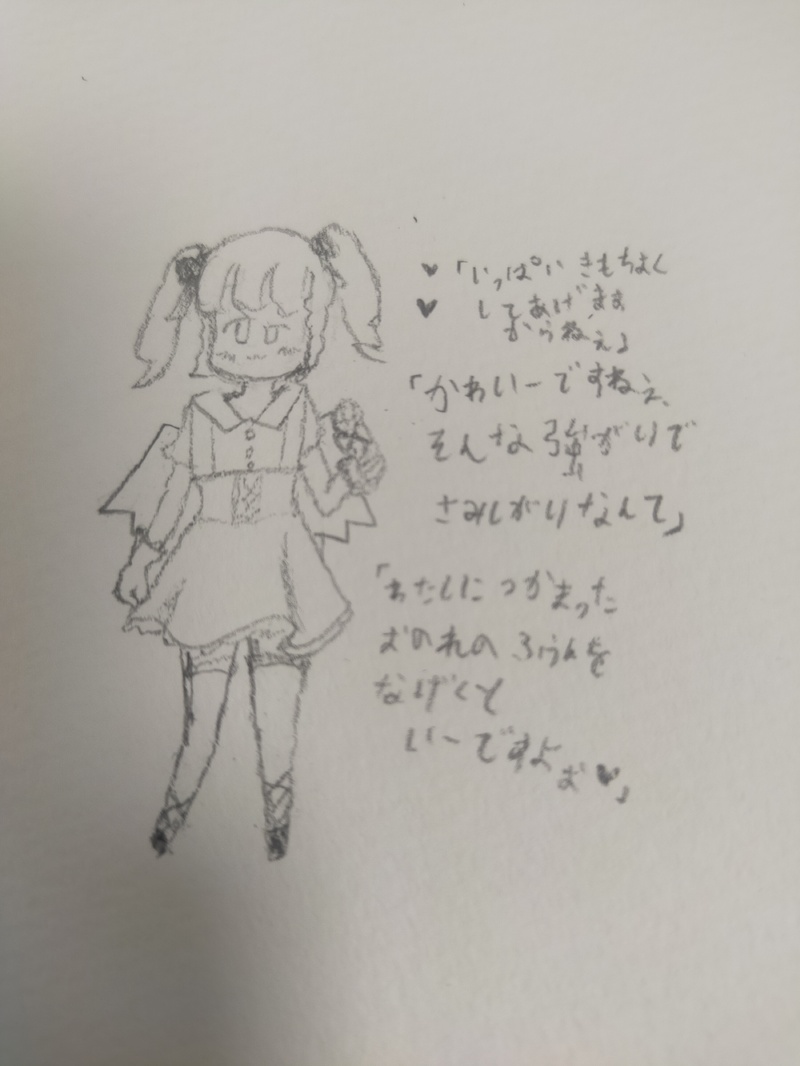 ♥「いっぱい きもちよく
♥ してあげます
からねぇ」
「かわいーですねぇ、
そんな強がりで
さみしがりなんて」
「わたしにつかまった
おのれのふうんを
なげくと
いーですよ
ぉ♥」